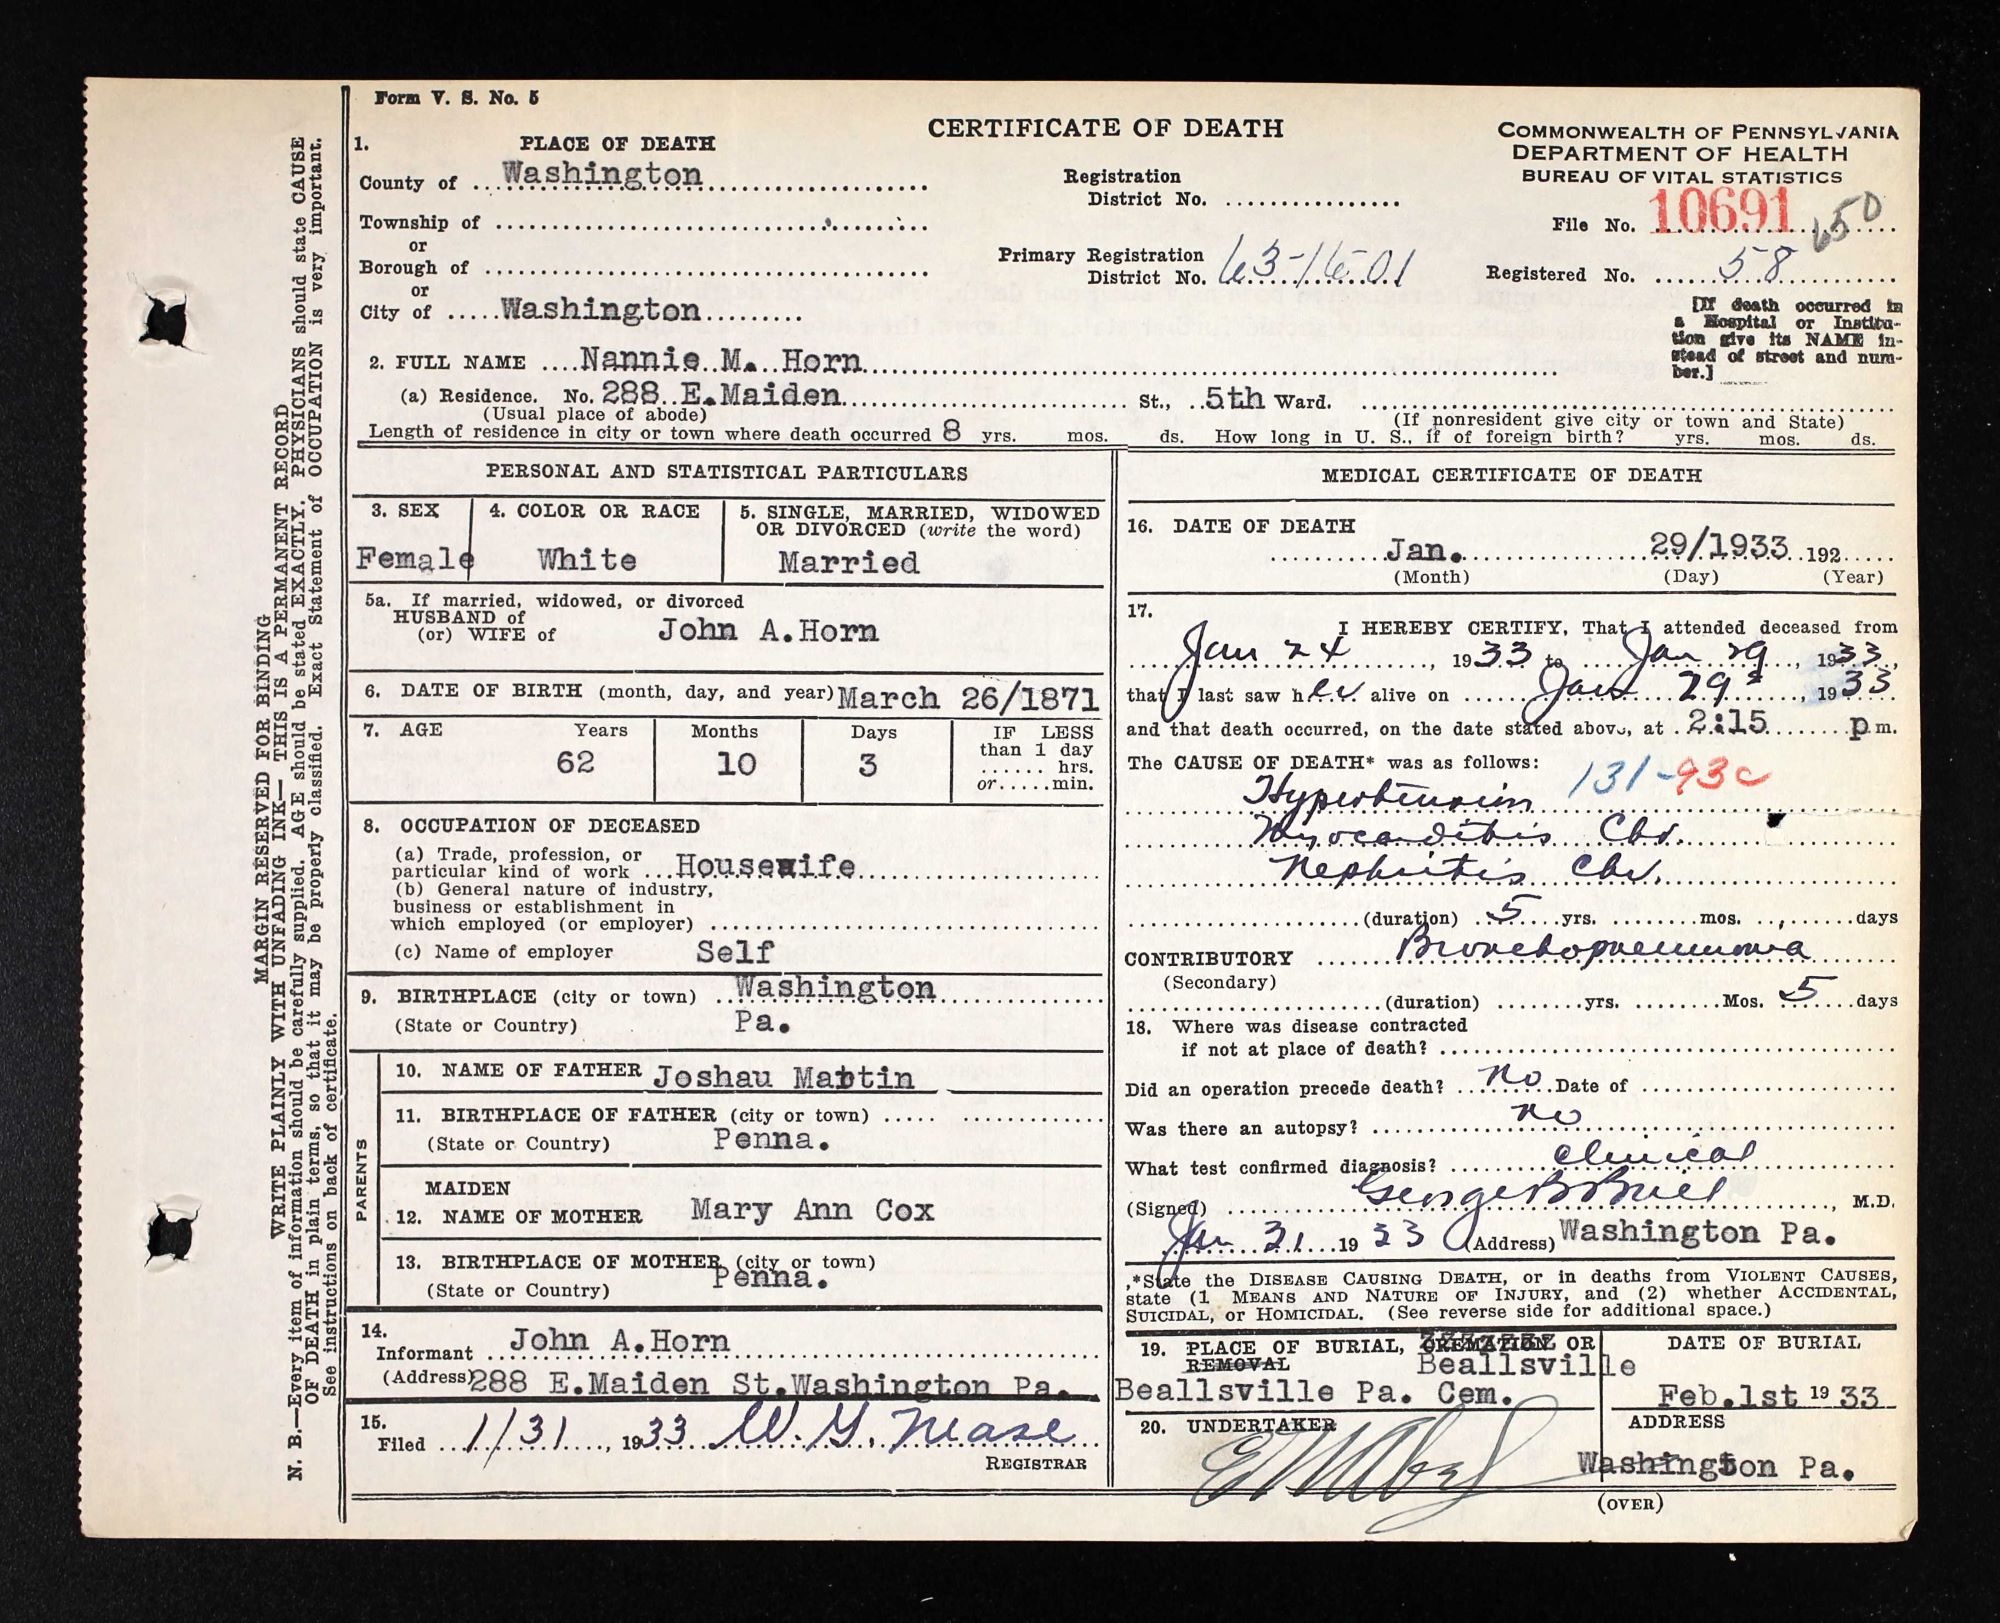 Form V. S. No. 5
CERTIFICATE OF DEATH
COMMONWEALTH OF PENNSYLVANIA
DEPARTMENT OF HEALTH
BUREAU OF VITAL STATISTICS
1. PLACE OF DEATH
County of Washington
Township of
or
Borough of
or
City of Washington
Registration
District No.
Primary Registration
District No. 63-16-01
File No. 10691
Registered No. 58
[If death occurred in
a Hospital or Institu-
tion give its NAME in-
stead of street and num-
ber.]
2. FULL NAME Nannie M. Horn
(a) Residence. No. 288 E.Maiden St., 5th Ward.
(Usual place of abode) (If nonresident give city or town and State)
Length of residence in city or town where death occurred 8 yrs. mos. ds. How long in U. S., if of foreign birth? yrs. mos. ds.
PERSONAL AND STATISTICAL PARTICULARS
3. SEX 4. COLOR OR RACE 5. SINGLE, MARRIED, WIDOWED
OR DIVORCED (write the word)
Female White Married
5a. If married, widowed, or divorced
HUSBAND of
(or) WIFE of John A.Horn
6. DATE OF BIRTH (month, day, and year) March 26/1871
7. AGE Years Months Days IF LESS
than 1 day
62 10 3 hrs.
or min.
8. OCCUPATION OF DECEASED
(a) Trade, profession, or
particular kind of work Housewife
(b) General nature of industry,
business or establishment in
which employed (or employer)
(c) Name of employer Self
9. BIRTHPLACE (city or town) Washington
(State or Country) Pa.
PARENTS
10. NAME OF FATHER Joshau Martin
11. BIRTHPLACE OF FATHER (city or town)
(State or Country) Penna.
MAIDEN
12. NAME OF MOTHER Mary Ann Cox
13. BIRTHPLACE OF MOTHER (city or town)
(State or Country) Penna.
14.
Informant John A.Horn
(Address) 288 E.Maiden St.Washington Pa.
15.
Filed 1/31, 1933 W. G. Nease
REGISTRAR
MEDICAL CERTIFICATE OF DEATH
16. DATE OF DEATH
Jan. 29/1933 192
(Month) (Day) (Year)
17.
I HEREBY CERTIFY, That I attended deceased from
Jan 24, 1933 to Jan 29, 1933,
that I last saw her alive on Jan 29, 1933
and that death occurred, on the date stated above, at 2:15 p m.
The CAUSE OF DEATH* was as follows:
131-93c
Hypertension
Myocarditis Chr.
Nephritis Chr.
(duration) 5 yrs. mos. days
CONTRIBUTORY Bronchopneumonia
(Secondary)
(duration) yrs. Mos. 5 days
18. Where was disease contracted
if not at place of death?
Did an operation precede death? no Date of
Was there an autopsy? no
What test confirmed diagnosis? Clinical
(Signed) George B, M.D.
Jan 31 1933 (Address) Washington Pa.
*State the DISEASE CAUSING DEATH, or in deaths from VIOLENT CAUSES,
state (1 MEANS AND NATURE OF INJURY, and (2) whether ACCIDENTAL,
SUICIDAL, or HOMICIDAL. (See reverse side for additional space.)
19. PLACE OF BURIAL, CREMATION OR
REMOVAL Beallsville
Beallsville Pa. Cem.
DATE OF BURIAL
Feb.1st 1933
20. UNDERTAKER
ADDRESS
Washington Pa.
(OVER)
MARGIN RESERVED FOR BINDING
WRITE PLAINLY WITH UNFADING INK— THIS IS A PERMANENT RECORD
N. B.—Every item of information should be carefully supplied. AGE should be stated EXACTLY. PHYSICIANS should state CAUSE
OF DEATH in plain terms, so that it may be properly classified. Exact Statement of OCCUPATION is very important.
See instructions on back of certificate.